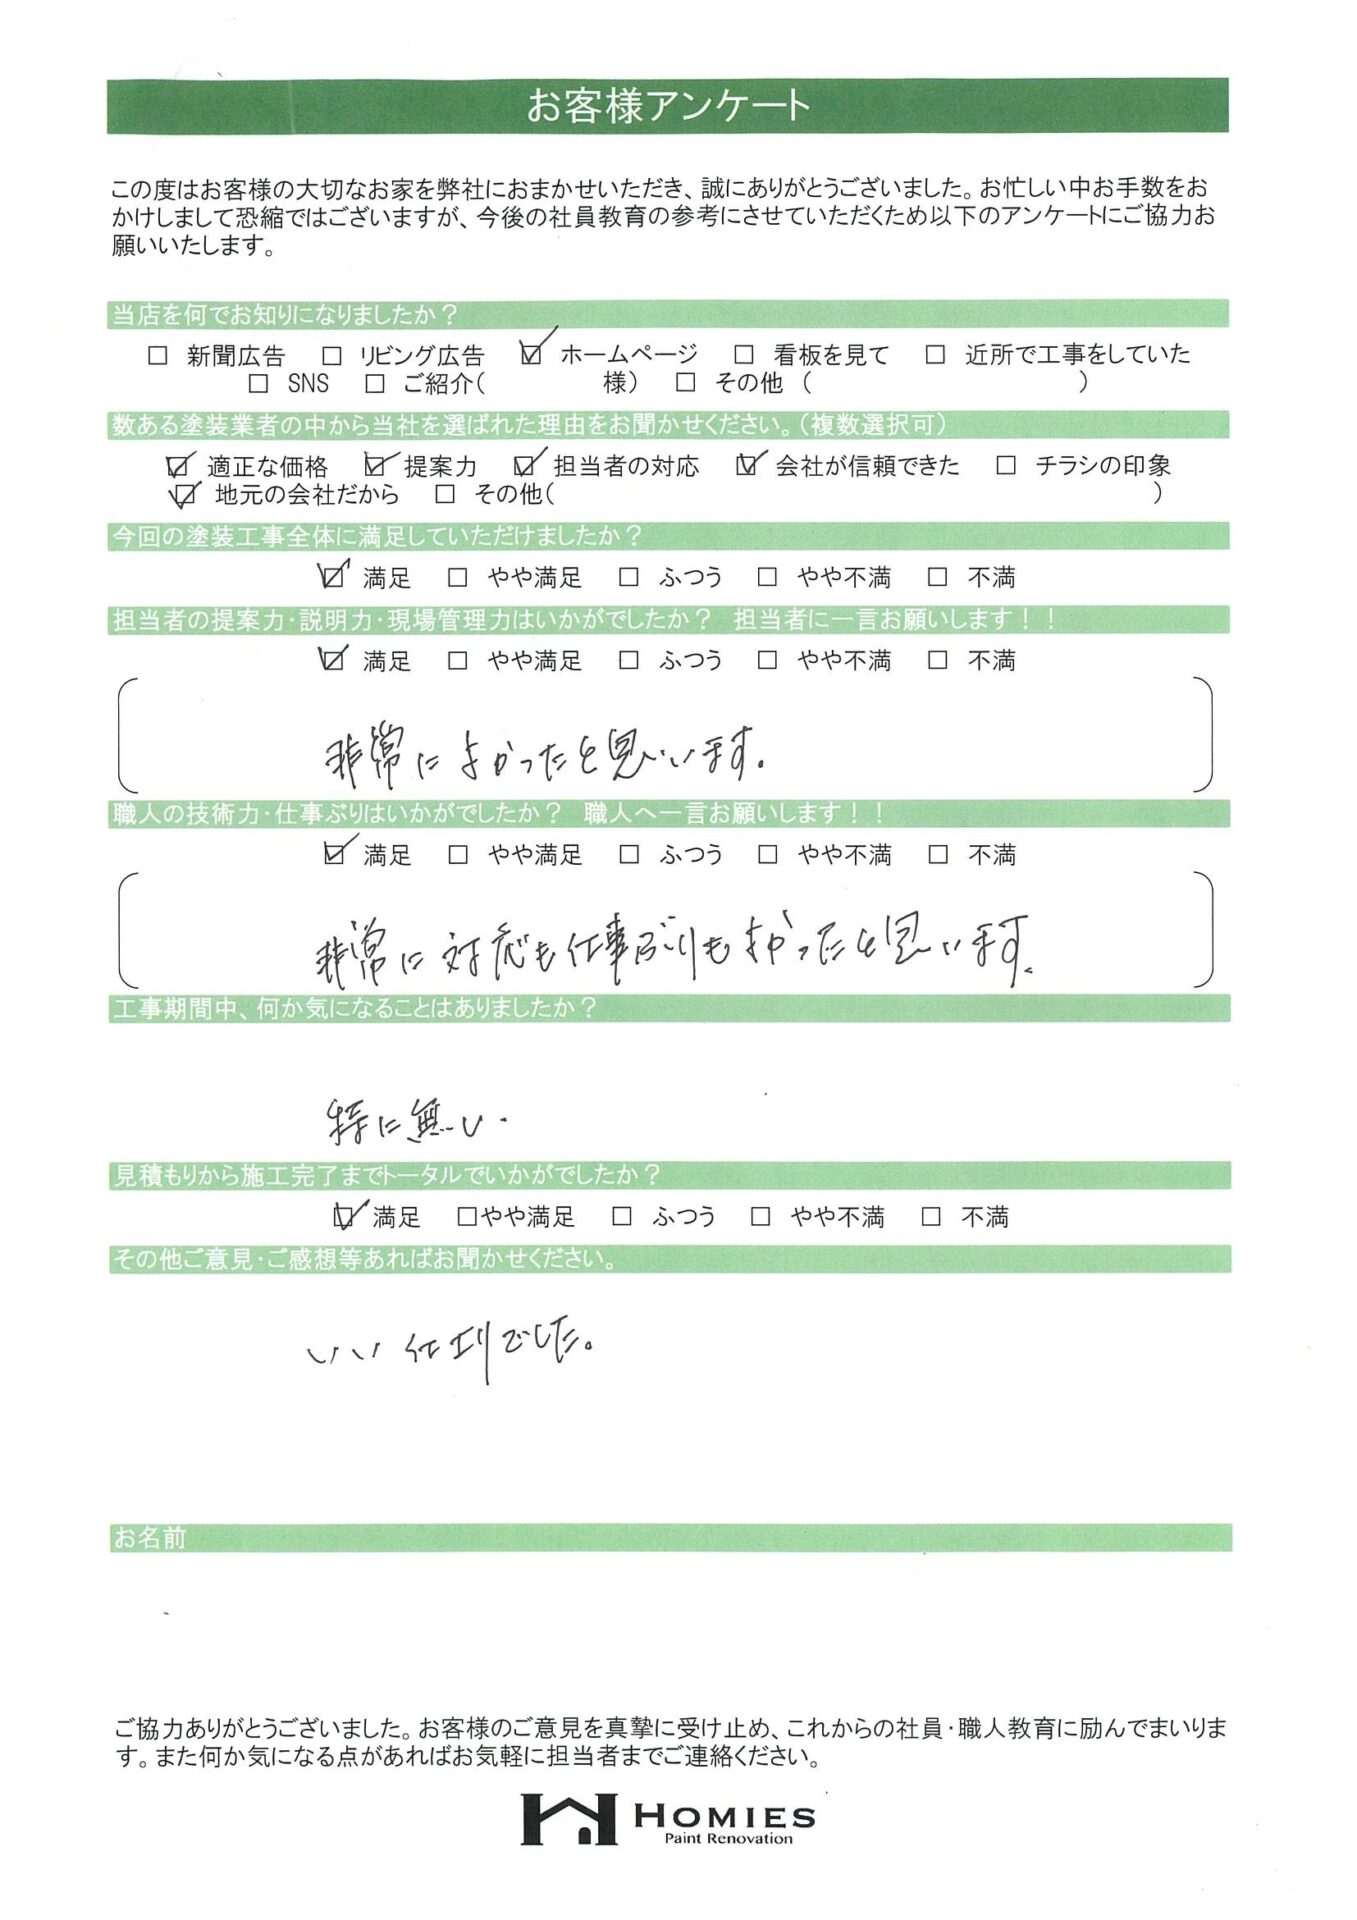 お客様アンケート
この度はお客様の大切なお家を弊社におまかせいただき、誠にありがとうございました。お忙しい中お手数をお
かけしまして恐縮ではございますが、今後の社員教育の参考にさせていただくため以下のアンケートにご協力お
願いいたします。
当店を何でお知りになりましたか？
□ 新聞広告 □ リビング広告 ☑ ホームページ □ 看板を見て □ 近所で工事をしていた
□ SNS □ ご紹介（ 様） □ その他 （ ）
数ある塗装業者の中から当社を選ばれた理由をお聞かせください。（複数選択可）
☑ 適正な価格 ☑ 提案力 ☑ 担当者の対応 ☑ 会社が信頼できた □ チラシの印象
☑ 地元の会社だから □ その他（ ）
今回の塗装工事全体に満足していただけましたか？
☑ 満足 □ やや満足 □ ふつう □ やや不満 □ 不満
担当者の提案力・説明力・現場管理力はいかがでしたか？ 担当者に一言お願いします！！
☑ 満足 □ やや満足 □ ふつう □ やや不満 □ 不満
非常によかったと思います。
職人の技術力・仕事ぶりはいかがでしたか？ 職人へ一言お願いします！！
☑ 満足 □ やや満足 □ ふつう □ やや不満 □ 不満
非常に対応も仕事ぶりもよかったと思います。
工事期間中、何か気になることはありましたか？
特に無い.
見積もりから施工完了までトータルでいかがでしたか？
☑ 満足 □やや満足 □ ふつう □ やや不満 □ 不満
その他ご意見・ご感想等あればお聞かせください。
いい でした。
お名前
ご協力ありがとうございました。お客様のご意見を真摯に受け止め、これからの社員・職人教育に励んでまいりま
す。また何か気になる点があればお気軽に担当者までご連絡ください。
HOMIES
Paint Renovation